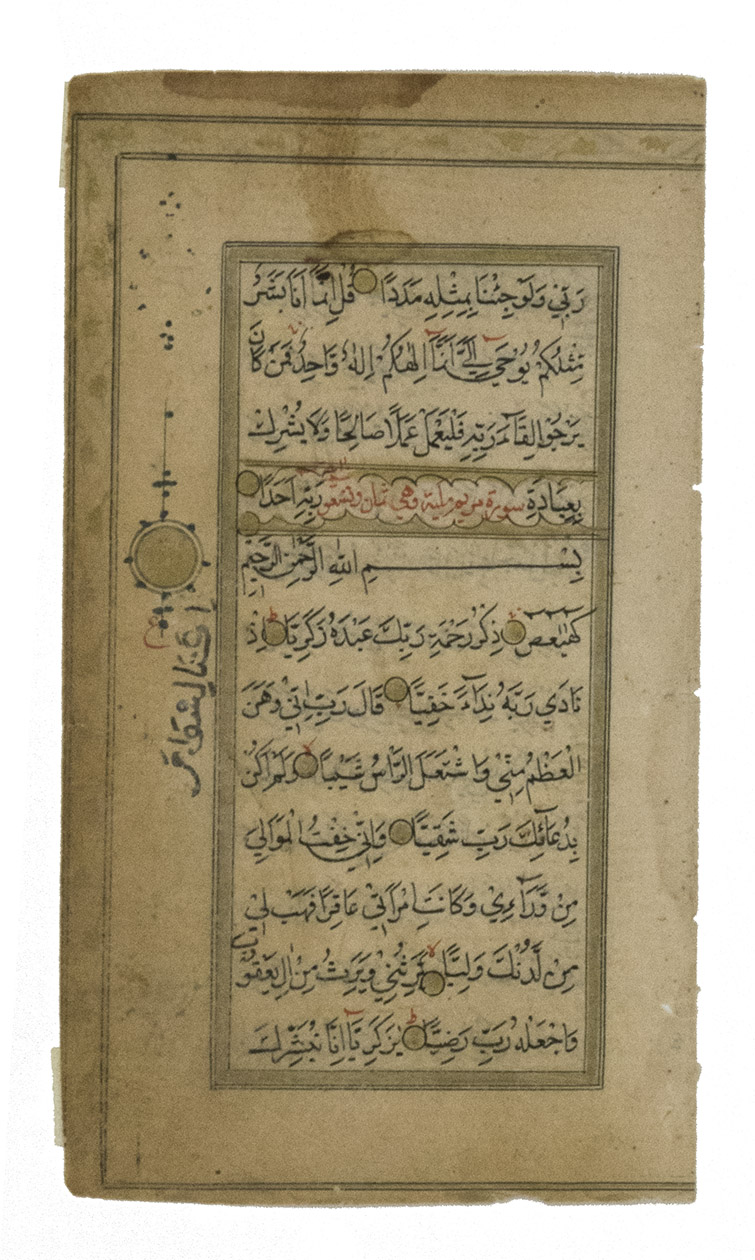 رَبِّي وَلَوْ جِئْنَا بِمِثْلِهِ مَدَدًا قُلْ إِنَّمَا أَنَا بَشَرٌ
مِثْلُكُمْ يُوحَى إِلَيَّ أَنَّمَا إِلٰهُكُمْ إِلٰهٌ وَاحِدٌ فَمَنْ كَانَ
يَرْجُوا لِقَآءَ رَبِّهِ فَلْيَعْمَلْ عَمَلًا صَالِحًا وَلَا يُشْرِكْ
بِعِبَادَةِ سورة مريم مكية وهي ثمان وتسعون رَبِّهِ أَحَدًا
بِسْمِ اللهِ الرَّحْمٰنِ الرَّحِيمِ
كهيعص ذِكْرُ رَحْمَةِ رَبِّكَ عَبْدَهُ زَكَرِيَّا إِذْ
نَادَى رَبَّهُ نِدَآءً خَفِيًّا قَالَ رَبِّ إِنِّي وَهَنَ
الْعَظْمُ مِنِّي وَاشْتَعَلَ الرَّأْسُ شَيْبًا وَلَمْ أَكُنْ
بِدُعَآئِكَ رَبِّ شَقِيًّا وَإِنِّي خِفْتُ الْمَوَالِيَ
مِنْ وَّرَآءِي وَكَانَتِ امْرَأَتِي عَاقِرًا فَهَبْ لِي
مِنْ لَّدُنْكَ وَلِيًّا يَرِثُنِي وَيَرِثُ مِنْ اٰلِ يَعْقُوبَ
وَاجْعَلْهُ رَبِّ رَضِيًّا يٰزَكَرِيَّا إِنَّا نُبَشِّرُكَ